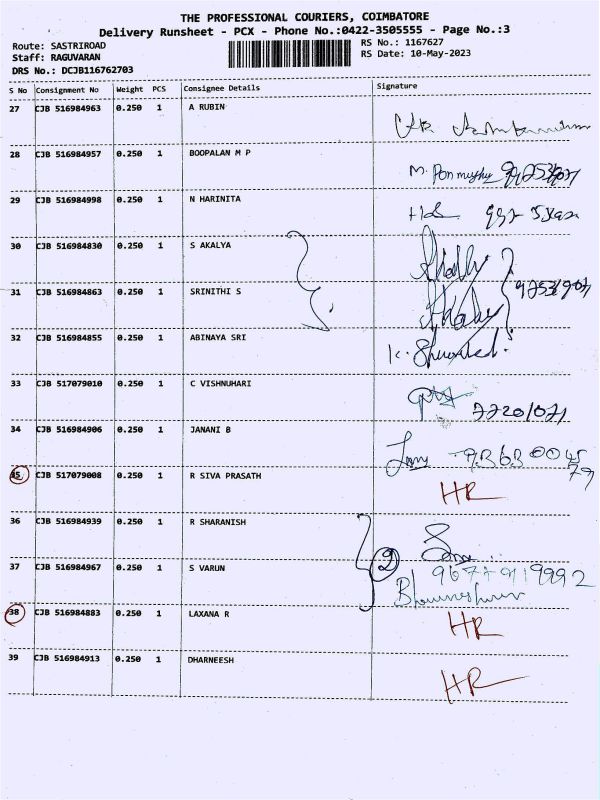 THE PROFESSIONAL COURIERS, COIMBATORE
Delivery Runsheet - PCX - Phone No.:0422-3505555 - Page No.:3
Route: SASTRIROAD
RS No.: 1167627
Staff: RAGUVARAN
RS Date: 10-May-2023
DRS No.: DCJB116762703
S No Consignment No Weight PCS Consignee Details Signature
27 CJB 516984963 0.250 1 A RUBIN
28 CJB 516984957 0.250 1 BOOPALAN M P
29 CJB 516984998 0.250 1 N HARINITA
30 CJB 516984830 0.250 1 S AKALYA
31 CJB 516984863 0.250 1 SRINITHI S
32 CJB 516984855 0.250 1 ABINAYA SRI
33 CJB 517079010 0.250 1 C VISHNUHARI
34 CJB 516984906 0.250 1 JANANI B
35 CJB 517079008 0.250 1 R SIVA PRASATH HR
36 CJB 516984939 0.250 1 R SHARANISH
2
37 CJB 516984967 0.250 1 S VARUN
38 CJB 516984883 0.250 1 LAXANA R HR
39 CJB 516984913 0.250 1 DHARNEESH HR